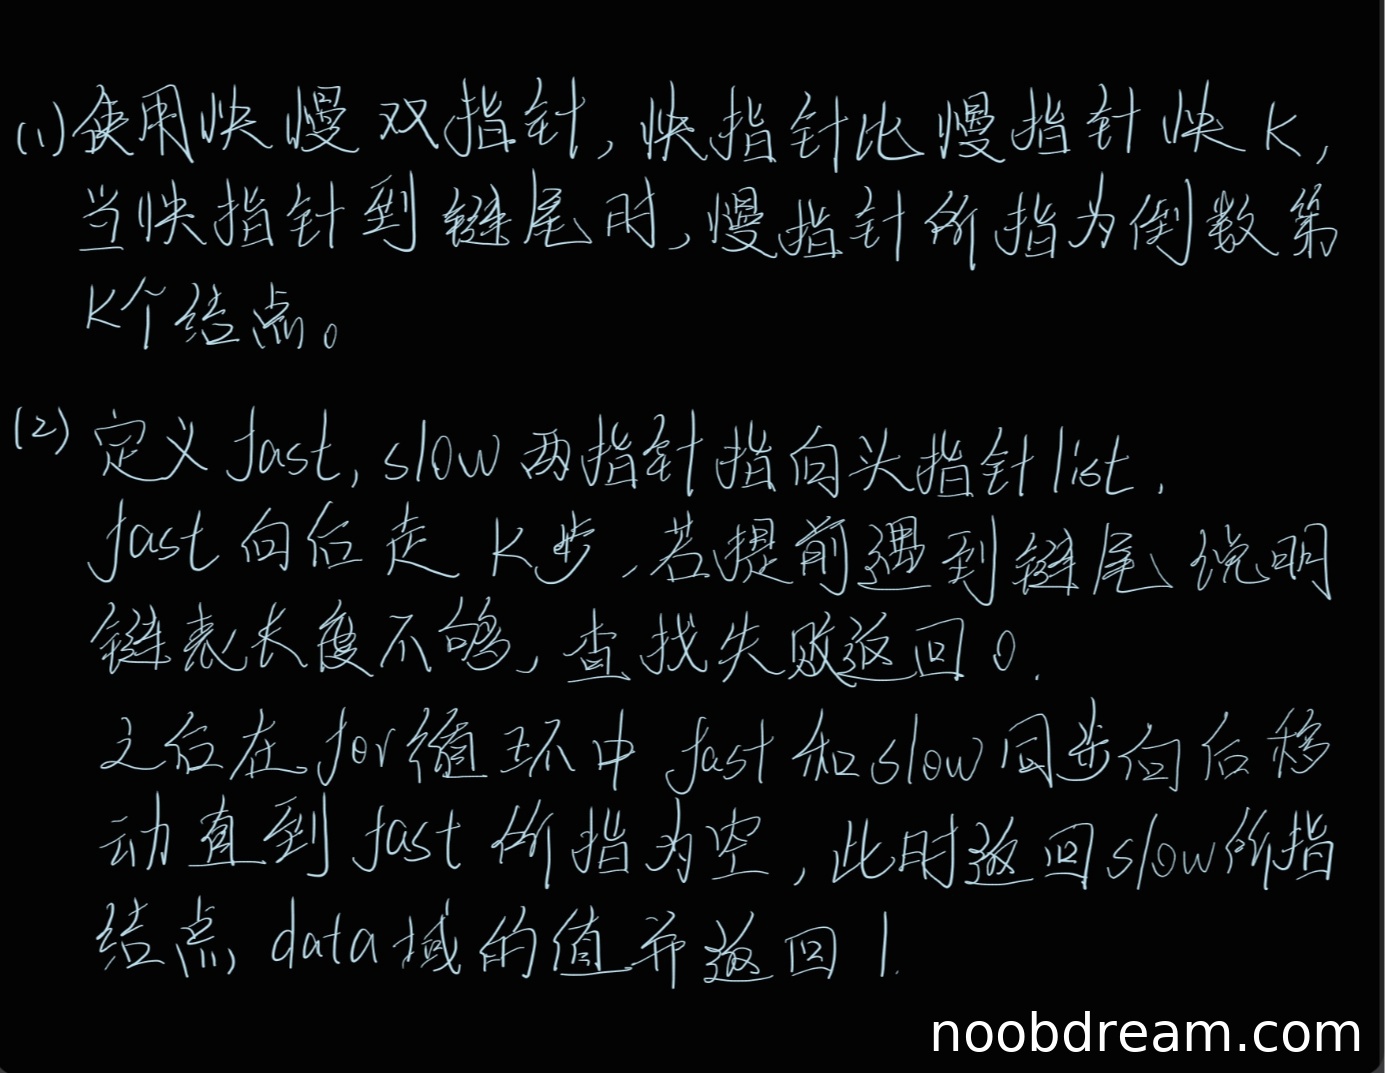 (1)使用快慢双指针,快指针比慢指针快K,
当快指针到键尾时,慢指针所指为倒数第
K个结点。
(2) 定义fast,slow两指针指向头指针list.
fast向后走 K步,若提前遇到键尾说明
键表长度不够,查找失败返回0.
之后在for循环中 fast和slow同步向后移
动直到fast所指为空,此时返回slow所指
结点data域的值并返回1.
noobdream.com